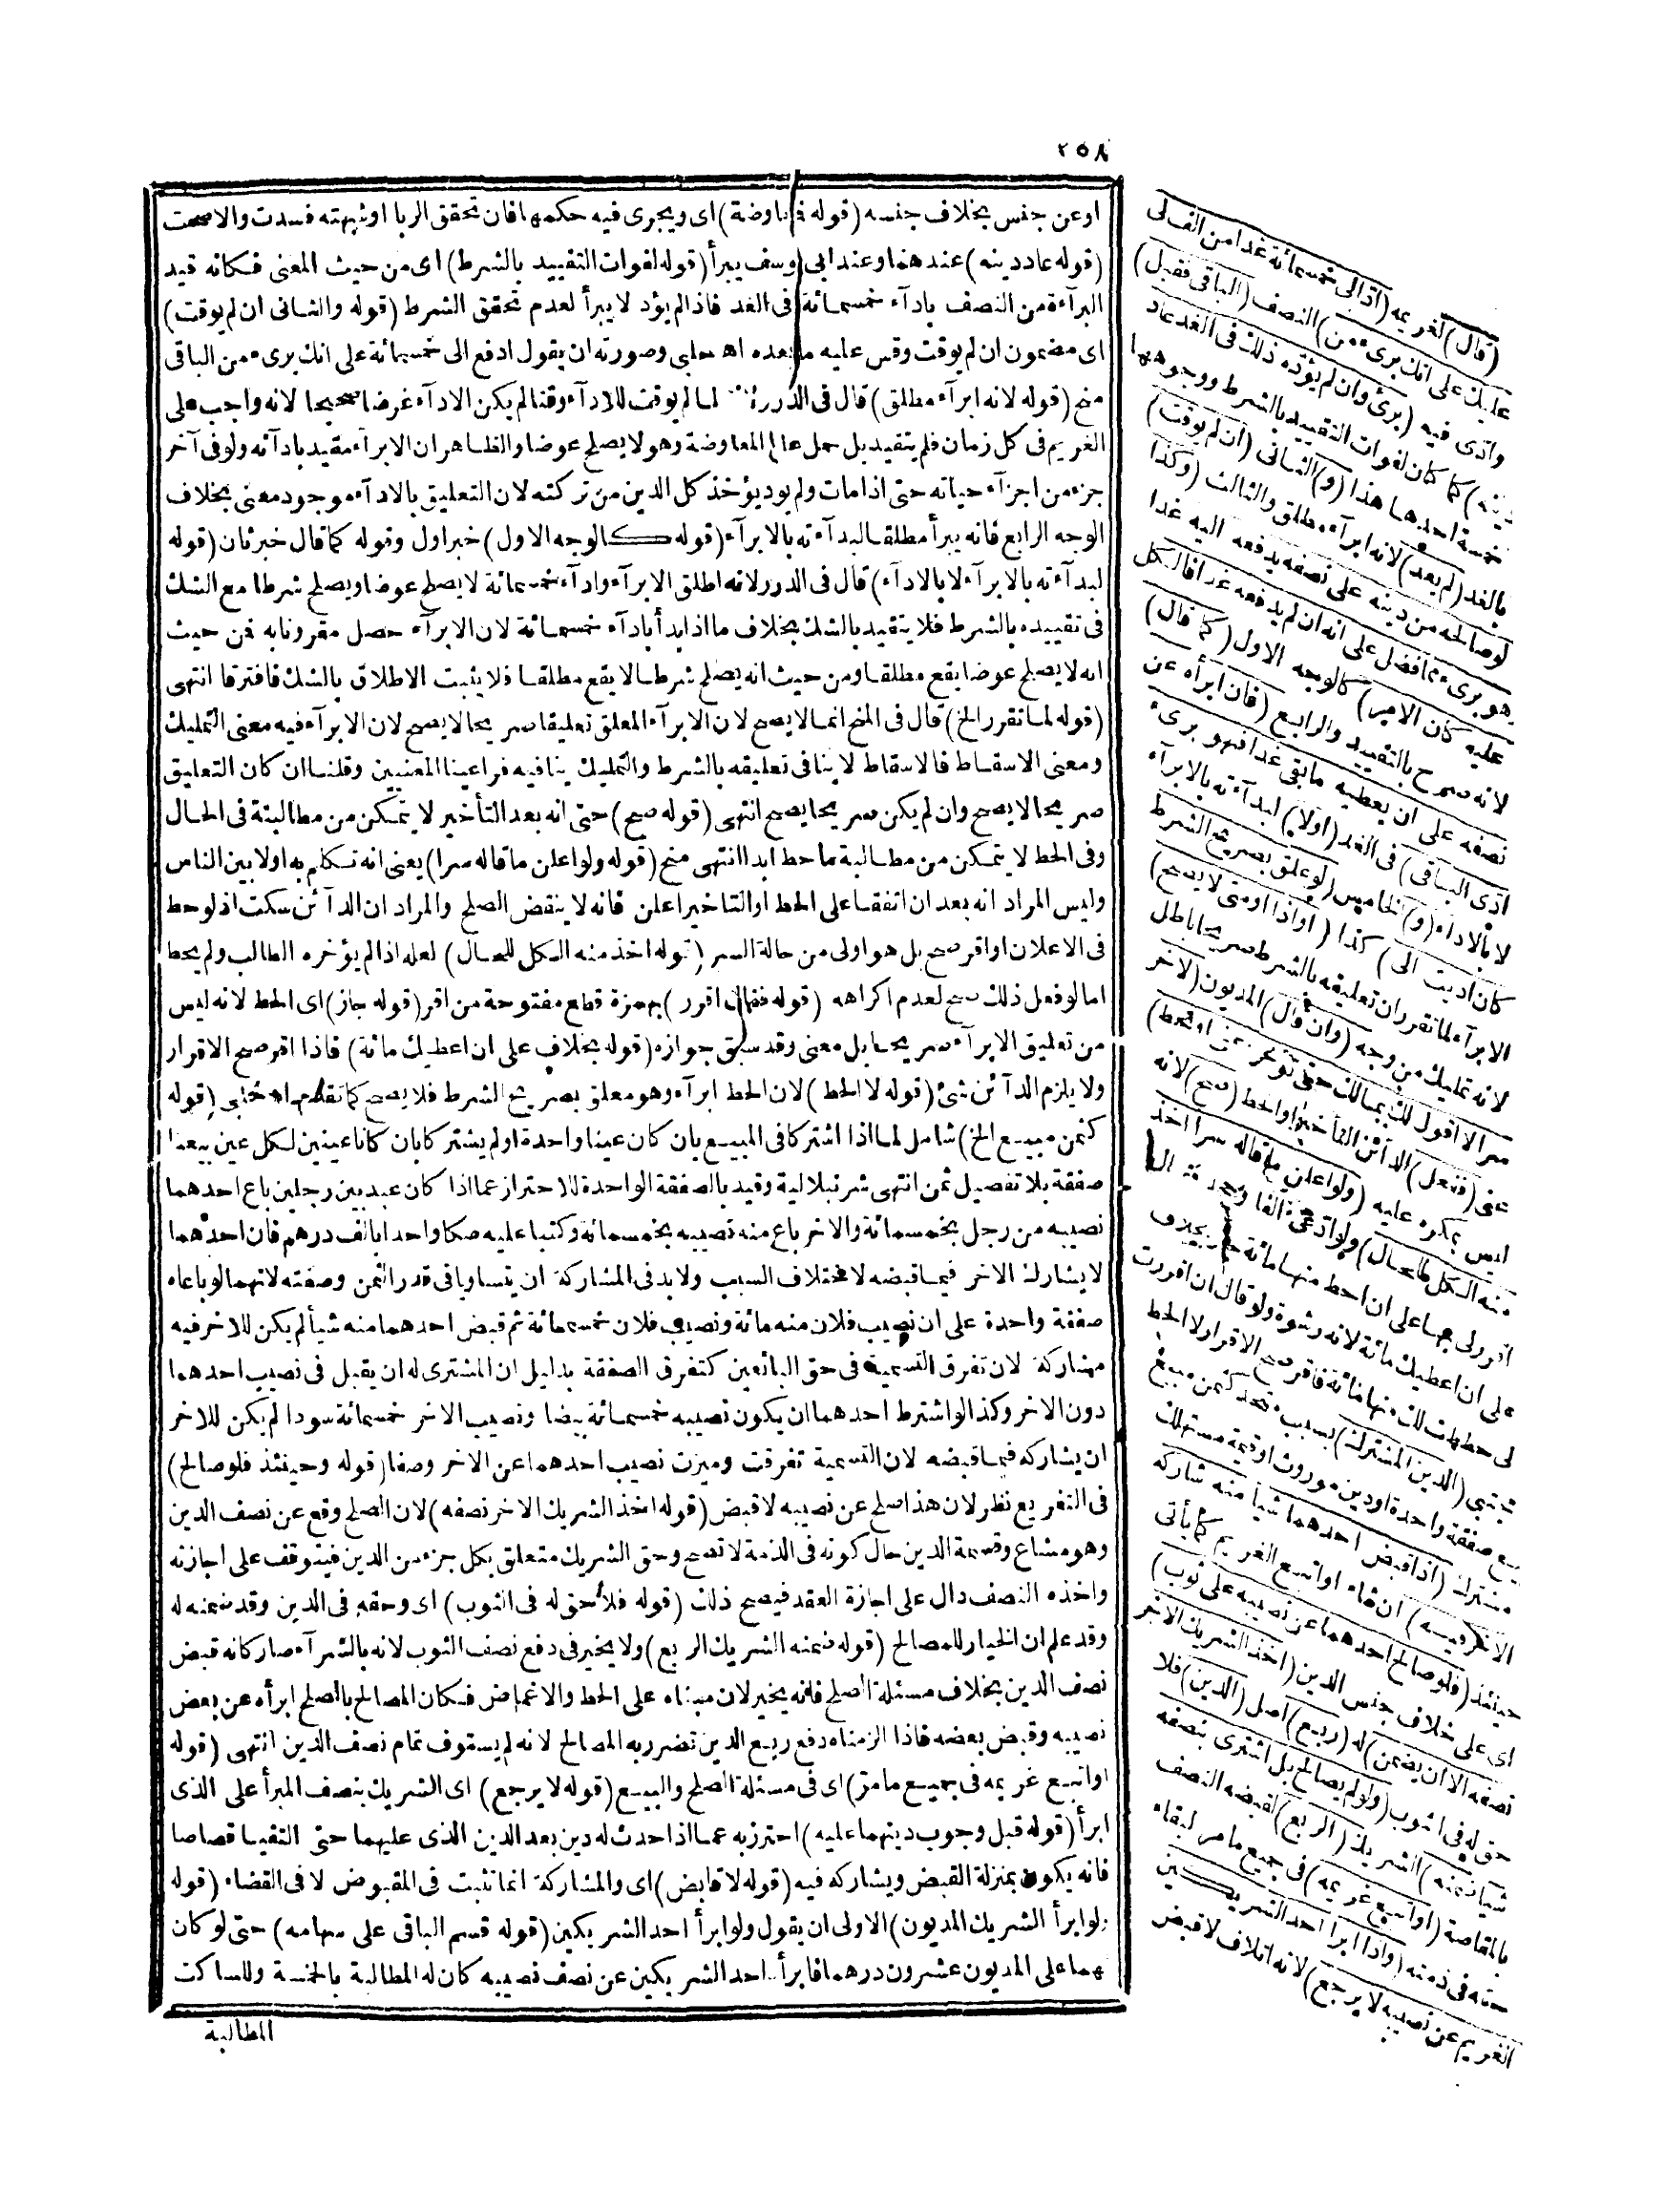 ٢٥٨
او عن جنس بخلاف جنسه (قوله فمعاوضة) اى ويجرى فيه حكمها فان تحقق الربا او شبهته فسدت والا صحت
(قوله عاد دينه) عندهما وعند ابى يوسف يبرأ (قوله لفوات التقييد بالشرط) اى من حيث المعنى فكانه قيد
البرآءة من النصف بادآء خمسمائة فى الغد فاذا لم يؤد لا يبرأ لعدم تحقق الشرط (قوله والثانى ان لم يوقت)
اى مضمون ان لم يوقت وقس عليه ما بعده اه حلبى وصورته ان يقول ادفع الى خمسمائة على انك برىء من الباقى
منح (قوله لانه ابرآء مطلق) قال فى الدرر لما لم يوقت للادآء وقتا لم يكن الادآء غرضا صحيحا لانه واجب على
الغريم فى كل زمان فلم يتقيد بل حمل على المعاوضة وهو لا يصلح عوضا والظاهر ان الابرآء مقيد بادآئه ولو فى آخر
جزء من اجزآء حياته حتى اذا مات ولم يود يؤخذ كل الدين من تركته لان التعليق بالادآء موجود معنى بخلاف
الوجه الرابع فانه يبرأ مطلقا لبدآءته بالابرآء (قوله كالوجه الاول) خبر اول وقوله كما قال خبر ثان (قوله
لبدآءته بالابرآء لا بالادآء) قال فى الدرر لانه اطلق الابرآء وادآء خمسمائة لا يصلح عوضا ويصلح شرطا مع الشك
فى تقييده بالشرط فلا يتقيد بالشك بخلاف ما اذا بدأ بادآء خمسمائة لان الابرآء حصل مقرونا به فمن حيث
انه لا يصلح عوضا يقع مطلقا ومن حيث انه يصلح شرطا لا يقع مطلقا فلا يثبت الاطلاق بالشك فافترقا انتهى
(قوله لما تقرر الخ) قال فى المنح انما لا يصح لان الابرآء المعلق تعليقا صريحا لا يصح لان الابرآء فيه معنى التمليك
ومعنى الاسقاط فالاسقاط لا ينافى تعليقه بالشرط والتمليك ينافيه فراعينا المعنيين وقلنا ان كان التعليق
صريحا لا يصح وان لم يكن صريحا يصح انتهى (قوله صح) حتى انه بعد التأخير لا يتمكن من مطالبته فى الحال
وفى الحط لا يتمكن من مطالبة ما حط ابدا انتهى منح (قوله ولو اعلن ما قاله سرا) يعنى انه تكلم به اولا بين الناس
وليس المراد انه بعد ان اتفقا على الحط او التأخير اعلن فانه لا ينقض الصلح والمراد ان الدآئن سكت اذ لو حط
فى الاعلان او اقر صح بل هو اولى من حالة السر (قوله اخذ منه الكل للحال) لعله اذا لم يؤخره الطالب ولم يحط
اما لو فعل ذلك صح لعدم اكراهه (قوله فقال اقرر) بهمزة قطع مفتوحة من اقر (قوله جاز) اى الحط لانه ليس
من تعليق الابرآء صريحا بل معنى وقد سبق جوازه (قوله بخلاف على ان اعطيك مائة) فاذا اقر صح الاقرار
ولا يلزم الدآئن شئ (قوله لا الحط) لان الحط ابرآء وهو معلق بصريح الشرط فلا يصح كما تقدم اه حلبى (قوله
كثمن مبيع الخ) شامل لما اذا اشتركا فى المبيع بان كان عينا واحدة او لم يشتركا بان كانا عينين لكل عين بيعتا
صفقة بلا تفصيل ثمن انتهى شرنبلالية وقيد بالصفقة الواحدة للاحتراز عما اذا كان عبد بين رجلين باع احدهما
نصيبه من رجل بخمسمائة والاخر باع منه نصيبه بخمسمائة وكتبا عليه صكا واحدا بالف درهم فان احدهما
لا يشارك الاخر فيما قبضه لاختلاف السبب ولابد فى المشاركة ان يتساويا فى قدر الثمن وصفته لانهما لو باعاه
صفقة واحدة على ان نصيب فلان منه مائة ونصيب فلان خمسمائة ثم قبض احدهما منه شيأ لم يكن للاخر فيه
مشاركة لان تفرق التسمية فى حق البائعين كتفرق الصفقة بدليل ان المشترى له ان يقبل فى نصيب احدهما
دون الاخر وكذا لو اشترط احدهما ان يكون نصيبه خمسمائة بيضا ونصيب الاخر خمسمائة سودا لم يكن للاخر
ان يشاركه فيما قبضه لان التسمية تفرقت وميزت نصيب احدهما عن الاخر وصفا (قوله وحينئذ فلو صالح)
فى التفريع نظر لان هذا صلح عن نصيبه لا قبض (قوله اخذ الشريك الاخر نصفه) لان الصلح وقع عن نصف الدين
وهو مشاع وقسمة الدين حال كونه فى الذمة لا تصح وحق الشريك متعلق بكل جزء من الدين فيتوقف على اجازته
واخذه النصف دال على اجازة العقد فيصح ذلك (قوله فلا حق له فى الثوب) اى وحقه فى الدين وقد ضمنه له
وقد علم ان الخيار للمصالح (قوله ضمنه الشريك الربع) ولا يخير فى دفع نصف الثوب لانه بالشرآء صار كانه قبض
نصف الدين بخلاف مسئلة الصلح فانه يخير لان مبناه على الحط والاغماض فكان المصالح بالصلح ابرأه عن بعض
نصيبه وقبض بعضه فاذا الزمناه دفع ربع الدين تضرر به المصالح لانه لم يستوف تمام نصف الدين انتهى (قوله
او اتبع غريمه فى جميع ما مر) اى فى مسئلة الصلح والبيع (قوله لا يرجع) اى الشريك بنصف المبرأ على الذى
ابرأ (قوله قبل وجوب دينهما عليه) احترز به عما اذا حدث له دين بعد الدين الذى عليهما حتى التقيا قصاصا
فانه يكون بمنزلة القبض ويشاركه فيه (قوله لا قابض) اى والمشاركة انما تثبت فى المقبوض لا فى القضاء (قوله
ولو ابرأ الشريك المديون) الاولى ان يقول ولو ابرأ احد الشريكين (قوله قسم الباقى على سهامه) حتى لو كان
لهما على المديون عشرون درهما فابرأ احد الشريكين عن نصف نصيبه كان له المطالبة بالخمسة وللساكت
المطالبة
(قال) لغريمه (اد الى خمسمائة غدا من الف لى
عليك على انك برىء من) النصف (الباقى فقبل)
وادى فيه (برئ وان لم يؤده ذلك فى الغد عاد
دينه) كما كان لفوات التقييد بالشرط ووجوهها
خمسة احدها هذا (و) الثانى (ان لم يوقت)
بالغد (لم يعد) لانه ابرآء مطلق والثالث (وكذا
لو صالحه من دينه على نصفه يدفعه اليه غدا
وهو برىء مما فضل على انه ان لم يدفعه غدا فالكل
عليه كان الامر) كالوجه الاول (كما قال)
لانه صرح بالتقييد والرابع (فان ابرأه عن
نصفه على ان يعطيه ما بقى غدا فهو برىء
ادى الباقى) فى الغد (اولا) لبدآءته بالابرآء
لا بالادآء (و) الخامس (لو علق بصريح الشرط
كان اديت الى) كذا (او اذا او متى لا يصح)
الابرآء لما تقرر ان تعليقه بالشرط صريحا باطل
لانه تمليك من وجه (وان قال) المديون (لاخر
سرا لا اقر لك بمالك حتى تؤخره عنى او تحط)
عنى (ففعل) الدآئن التأخير او الحط (صح) لانه
ليس بمكره عليه (ولو اعلن ما قاله سرا اخذ
منه الكل للحال) ولو ادعى الفا وجحد فقال
اقرر لى بها على ان احط منها مائة جاز بخلاف
على ان اعطيك مائة لانه رشوة ولو قال ان اقررت
لى حططت لك منها مائة فاقر صح الاقرار لا الحط
مجتبى (الدين المشترك) بسبب متحد كثمن مبيع
بيع صفقة واحدة او دين موروث او قيمة مستهلك
مشترك (اذا قبض احدهما شيأ منه شاركه
الاخر فيه) ان شاء او اتبع الغريم كما يأتى
وحينئذ (فلو صالح احدهما عن نصيبه على ثوب)
اى على خلاف جنس الدين (اخذ الشريك الاخر
نصفه الا ان يضمن) له (ربع) اصل (الدين) فلا
حق له فى الثوب (ولو لم يصالح بل اشترى بنصفه
شيأ ضمنه) الشريك (الربع) لقبضه النصف
بالمقاصة (او اتبع غريمه) فى جميع ما مر لبقاء
حقه فى ذمته (واذا ابرأ احد الشريكين
الغريم عن نصيبه لا يرجع) لانه اتلاف لا قبض